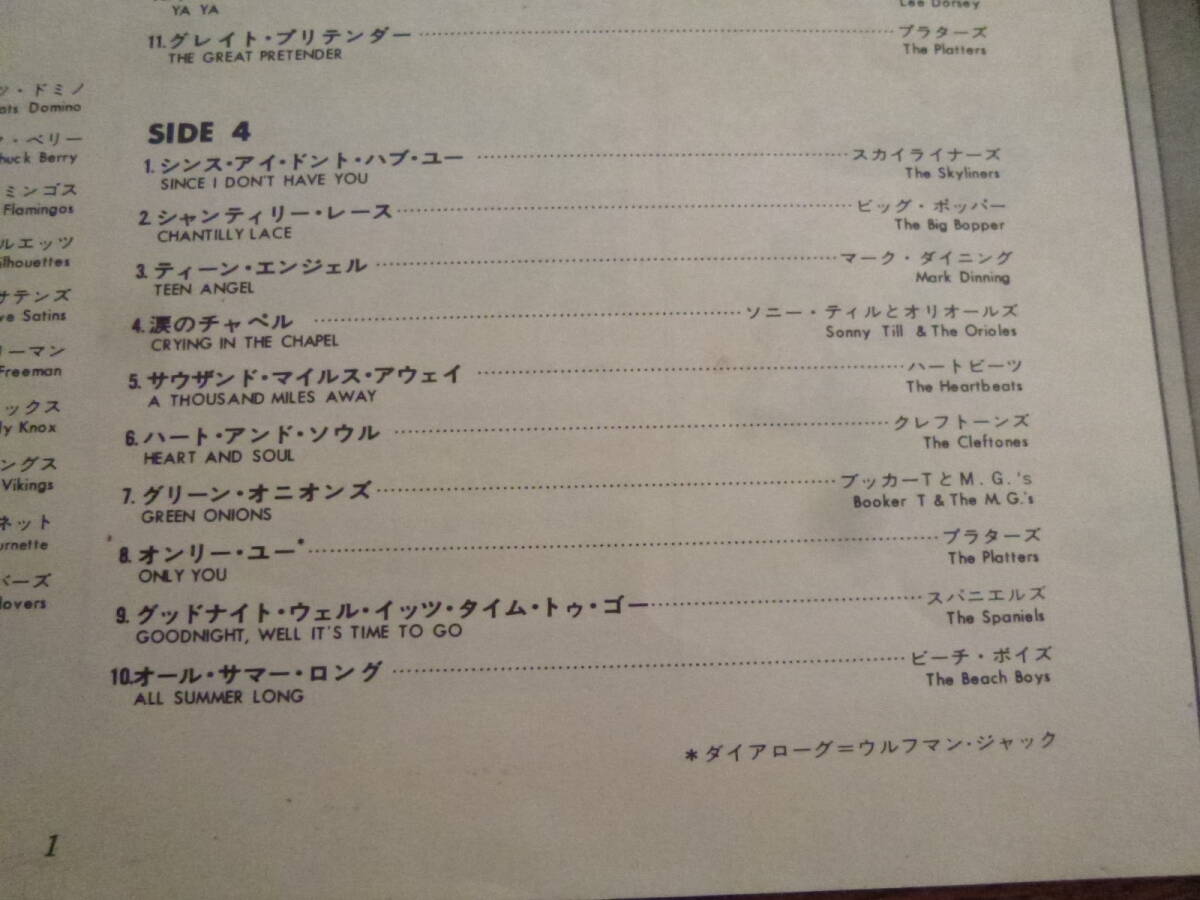 YA YA
Lee Dorsey
11.グレイト・プリテンダー プラターズ
THE GREAT PRETENDER The Platters
SIDE 4
1.シンス・アイ・ドント・ハブ・ユー スカイライナーズ
SINCE I DON'T HAVE YOU The Skyliners
2.シャンティリー・レース ビッグ・ボッパー
CHANTILLY LACE The Big Bopper
3.ティーン・エンジェル マーク・ダイニング
TEEN ANGEL Mark Dinning
4.涙のチャペル ソニー・ティルとオリオールズ
CRYING IN THE CHAPEL Sonny Till & The Orioles
5.サウザンド・マイルス・アウェイ ハートビーツ
A THOUSAND MILES AWAY The Heartbeats
6.ハート・アンド・ソウル クレフトーンズ
HEART AND SOUL The Cleftones
7.グリーン・オニオンズ ブッカーTとM.G.'s
GREEN ONIONS Booker T & The M.G.'s
8.オンリー・ユー* プラターズ
ONLY YOU The Platters
9.グッドナイト・ウェル・イッツ・タイム・トゥ・ゴー スパニエルズ
GOODNIGHT, WELL IT'S TIME TO GO The Spaniels
10.オール・サマー・ロング ビーチ・ボイズ
ALL SUMMER LONG The Beach Boys
*ダイアローグ=ウルフマン・ジャック
ッ・ドミノ
ats Domino
ク・ベリー
huck Berry
ミンゴス
Flamingos
ルエッツ
ilhouettes
サテンズ
ve Satins
リーマン
Freeman
ックス
dy Knox
ングス
Vikings
ネット
urnette
バーズ
lovers
1